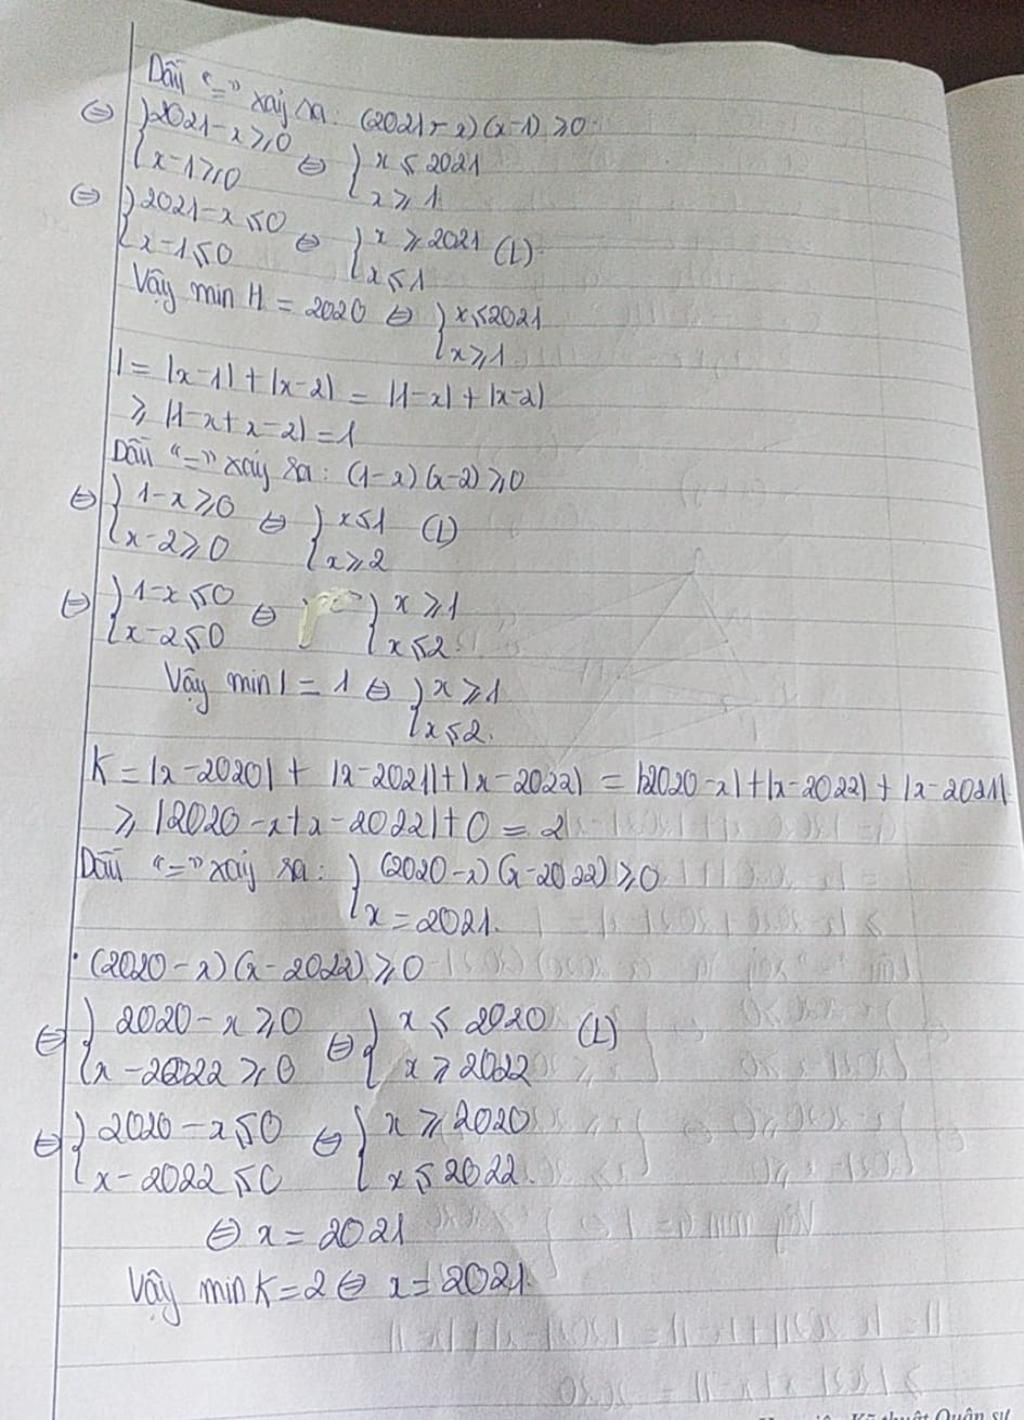 Dấu "=" xảy ra: (2021-x)(x-1) ≥ 0
⇔ { 2021-x ≥ 0 ⇔ { x ≤ 2021
x-1 ≥ 0 x ≥ 1
⇔ { 2021-x ≤ 0 ⇔ { x ≥ 2021 (L)
x-1 ≤ 0 x ≤ 1
Vậy min H = 2020 ⇔ { x ≤ 2021
x ≥ 1
I = |x-1| + |x-2| = |1-x| + |x-2|
≥ |1-x+x-2| = 1
Dấu "=" xảy ra: (1-x)(x-2) ≥ 0
⇔ { 1-x ≥ 0 ⇔ { x ≤ 1 (L)
x-2 ≥ 0 x ≥ 2
⇔ { 1-x ≤ 0 ⇔ { x ≥ 1
x-2 ≤ 0 x ≤ 2
Vậy min I = 1 ⇔ { x ≥ 1
x ≤ 2.
K = |x-2020| + |x-2021| + |x-2022| = |2020-x| + |x-2022| + |x-2021|
≥ |2020-x+x-2022| + 0 = 2
Dấu "=" xảy ra: { (2020-x)(x-2022) ≥ 0
x = 2021.
• (2020-x)(x-2022) ≥ 0
⇔ { 2020-x ≥ 0 ⇔ { x ≤ 2020 (L)
x-2022 ≥ 0 x ≥ 2022
⇔ { 2020-x ≤ 0 ⇔ { x ≥ 2020
x-2022 ≤ 0 x ≤ 2022.
⇔ x = 2021
Vậy min K = 2 ⇔ x = 2021.
Kĩ thuật Quân sự